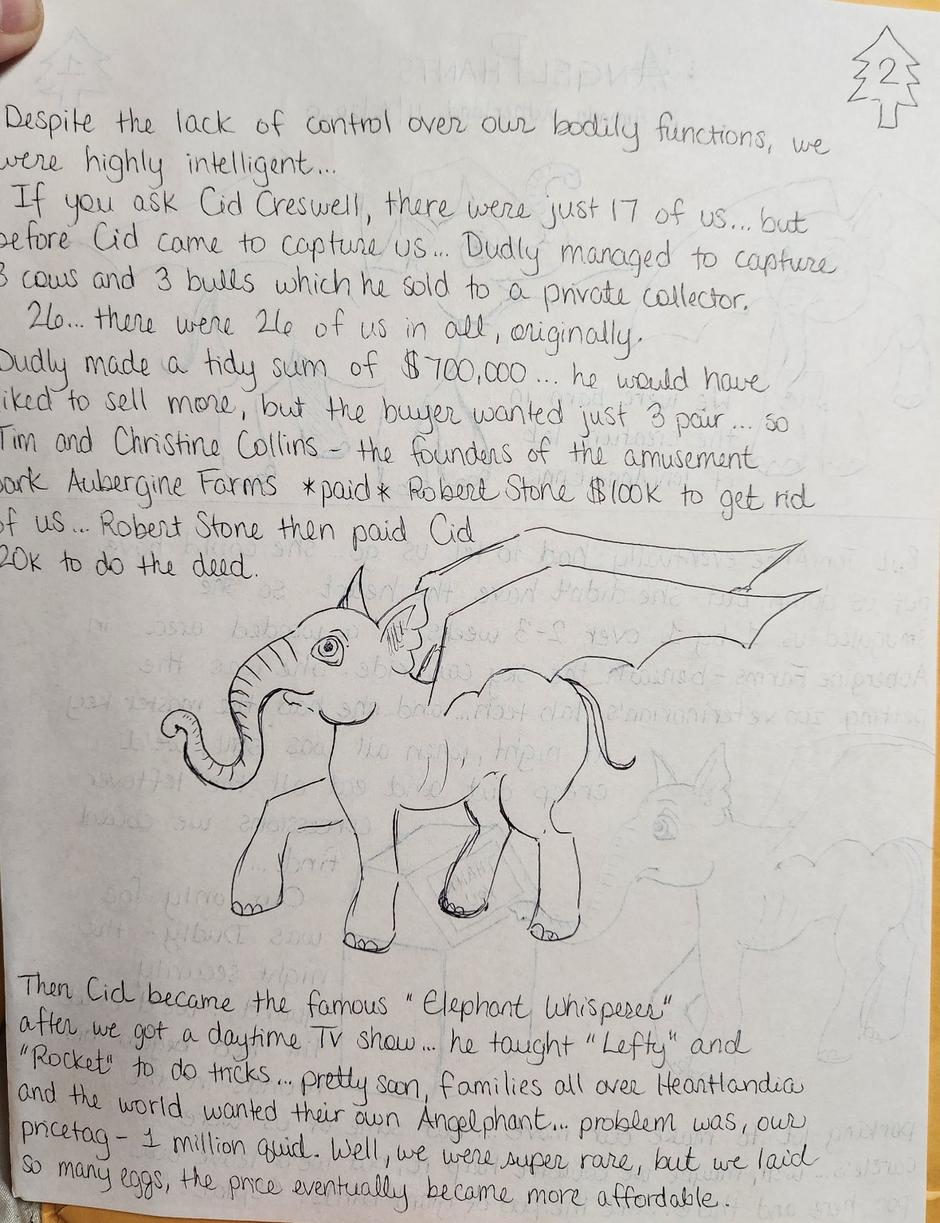 2
Despite the lack of control over our bodily functions, we
were highly intelligent...
If you ask Cid Creswell, there were just 17 of us... but
before Cid came to capture us... Dudly managed to capture
3 cows and 3 bulls which he sold to a private collector.
26... there were 26 of us in all, originally.
Dudly made a tidy sum of $700,000... he would have
liked to sell more, but the buyer wanted just 3 pair... so
Tim and Christine Collins - the founders of the amusement
park Aubergine Farms *paid* Robert Stone $100K to get rid
of us... Robert Stone then paid Cid
20K to do the deed.
Then Cid became the famous "Elephant Whisperer"
after we got a daytime TV show... he taught "Lefty" and
"Rocket" to do tricks... pretty soon, families all over Heartlandia
and the world wanted their own Angelphant... problem was, our
pricetag - 1 million quid. Well, we were super rare, but we laid
so many eggs, the price eventually became more affordable.